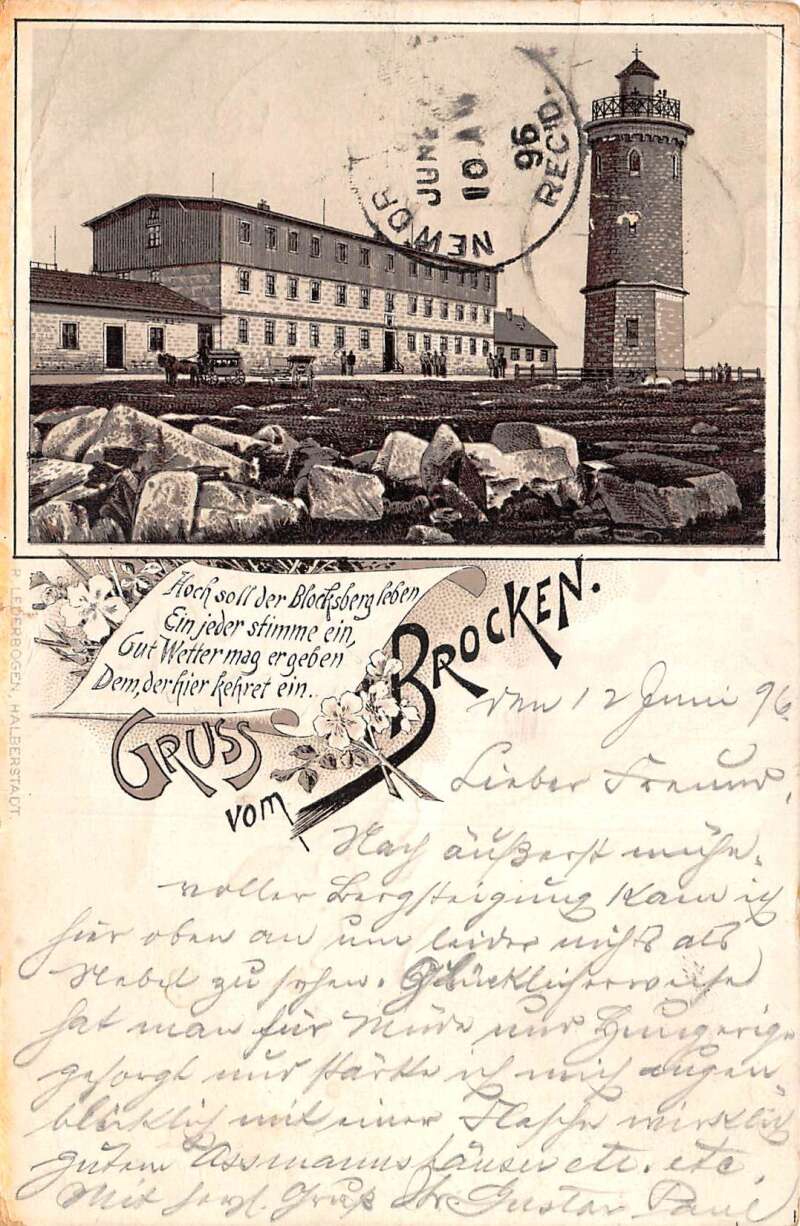 NEW OR
JUN
10 1
96
REC'D.
Hoch soll der Blocksberg leben
Ein jeder stimme ein,
Gut Wetter mag er geben
Dem, der hier kehret ein..
GRUSS
vom
BROCKEN.
R. LEDERBOGEN, HALBERSTADT.
den 12 Juni 96.
Lieber Freund,
Nach äußerst mühe-
voller Bergsteigung kam ich
hier oben an um leider nichts als
Nebel zu sehen. Glücklicherweise
hat man für Müde und Hungerige
gesorgt und stärkte ich mich augen-
blicklich mit einer Flasche wirklich
gutem Assmannshäuser etc. etc.
Mit herzl. Gruß Gustav